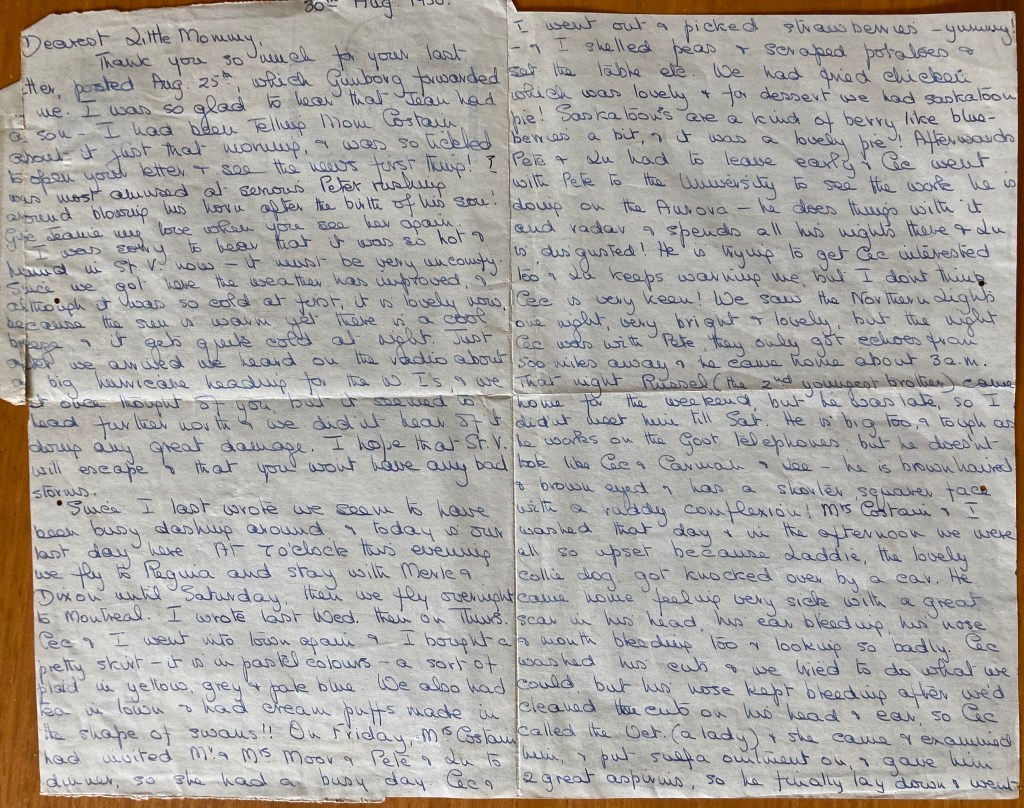 30th Aug. 1950.
Dearest Little Mommy,
Thank you so much for your last
tter, posted Aug. 25th, which Gunborg forwarded
me. I was so glad to hear that Jean had
a son - I had been telling Mom Costain
about it just that morning, & was so tickled
to open your letter & see the news first thing! I
was most amused at serious Peter rushing
around blowing his horn after the birth of his son!
Give Jeanie my love when you see her again.
I was sorry to hear that it was so hot &
humid in St. V. now - it must be very uncomfy.
Since we got here the weather has improved, &
although it was so cold at first, it is lovely now,
because the sun is warm yet there is a cool
breeze & it gets quite cold at night. Just
after we arrived we heard on the radio about
a big hurricane heading for the W Is, & we
at once thought of you, but it seemed to
head further north & we didn't hear of it
doing any great damage. I hope that St. V.
will escape & that you wont have any bad
storms.
Since I last wrote we seem to have
been busy dashing around & today is our
last day here. At 7 o'clock this evening
we fly to Regina and stay with Merle &
Dixon until Saturday, then we fly overnight
to Montreal. I wrote last Wed. then on Thurs.
Cec & I went into town again & I bought a
pretty skirt - it is in pastel colours - a sort of
plaid in yellow, grey & pale blue. We also had
tea in town & had cream puffs made in
the shape of swans!! On Friday, Mrs Costain
had invited Mr & Mrs Moor & Pete & Lu to
dinner, so she had a busy day. Cec &
I went out & picked strawberries - yummy!
- & I shelled peas & scraped potatoes &
set the table etc. We had fried chicken
which was lovely & for dessert we had saskatoon
pie! Saskatoons are a kind of berry like blue-
berries a bit, & it was a lovely pie! Afterwards
Pete & Lu had to leave early & Cec went
with Pete to the University to see the work he is
doing on the Aurora - he does things with it
and radar & spends all his nights there & Lu
is disgusted! He is trying to get Cec interested
too & Lu keeps warning me, but I dont think
Cec is very keen! We saw the Northern Lights
one night, very bright & lovely, but the night
Cec was with Pete, they only got echoes from
500 miles away & he came home about 3 a.m.
That night Russel (the 2nd youngest brother) came
home for the weekend, but he was late, so I
didnt meet him till Sat. He is big too, & tough as
he works on the Govt. telephones but he doesnt
look like Cec & Carman & Lee - he is brown haired
& brown eyed & has a shorter squarer face
with a ruddy complexion! Mrs Costain & I
washed that day & in the afternoon we were
all so upset because Laddie, the lovely
collie dog, got knocked over by a car. He
came home feeling very sick with a great
scar in his head, his ear bleeding, his nose
& mouth bleeding too & looking so badly. Cec
washed his cuts & we tried to do what we
could, but his nose kept bleeding after we'd
cleaned the cuts on his head & ear, so Cec
called the Vet. (a lady) & she came & examined
him, & put sulfa ointment on, & gave him
2 great aspirins, so he finally lay down & went